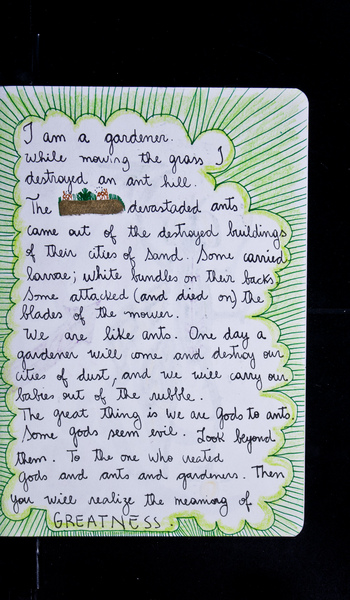 I am a gardener.
While mowing the grass I
destroyed an ant hill.
The devastaded ants
came out of the destroyed buildings
of their cities of sand. Some carried
larvae; white bundles on their backs
Some attacked (and died on) the
blades of the mower.
We are like ants. One day a
gardener will come and destroy our
cities of dust, and we will carry our
babies out of the rubble.
The great thing is we are Gods to ants.
Some gods seem evil. Look beyond
them. To the one who created
gods and ants and gardeners. Then
you will realize the meaning of
GREATNESS.